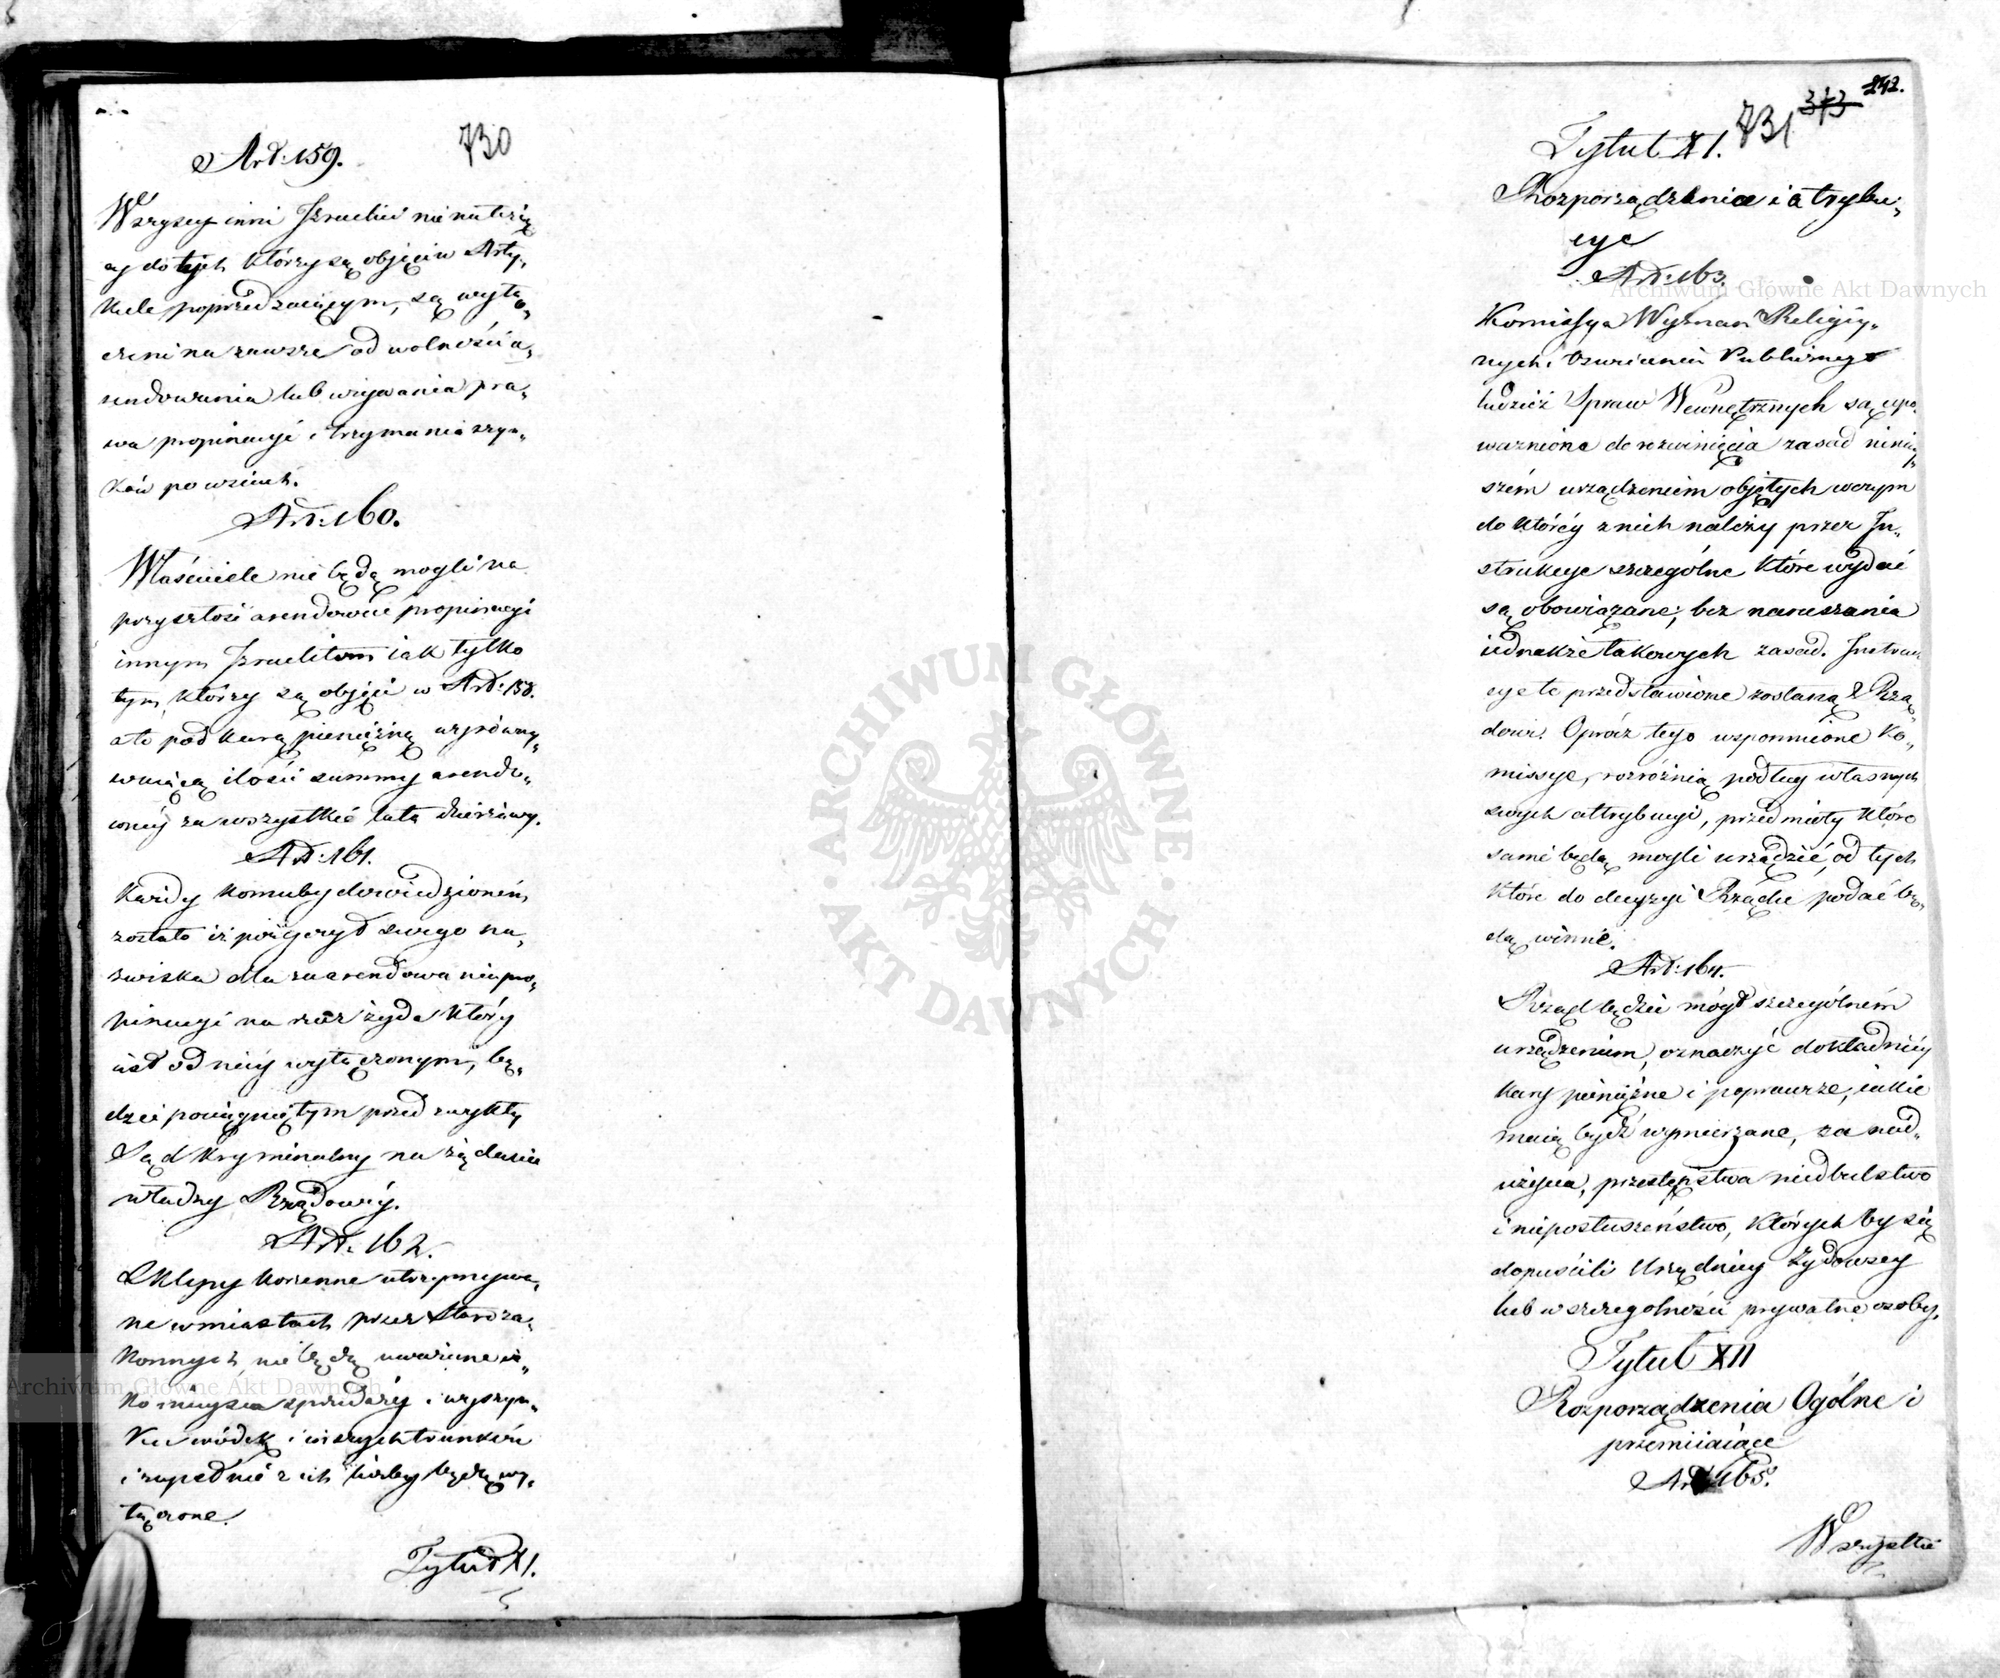 730
Art: 159.
Wszyscy inni Izraelici nie należą„
cy do tych którzy są objęci w Arty„
kule poprzedzaiącym, są wyłą„
czeni na zawsze od wolności a„
rendowania lub używania pra„
wa propinacyi i trzymania szyn„
ków po wsiach.
Art: 160.
Właściciele nie będą mogli na
przyszłość arendować propinacyi
innym Izraelitom iak tylko
tym którzy są objęci w Art: 158.
a to pod karą pieniężną wyrówny„
waiącą ilości summy arendo„
wnéy za wszystkie lata dzierżawy.
Art: 161.
Każdy komuby dowiedzioném
zostało iż pożyczył swego na„
zwiska dla zaarendowania pro„
pinacyi na rzecz żyda który
iest od niéy wyłączonym, bę„
dzie pociągniętym przed zwykły
Sąd Kryminalny na żądanie
władzy Rządowéy.
Art: 162.
Sklepy korzenne utrzymywa„
ne w miastach przez Staroza„
konnych nie będą uważane ia„
ko mieysca sprzedaży i wyszyn„
ku wódek i innych trunków
i zupełnie z ich liczby będą wy„
łączone.
Tytuł XI.
242.
313
731
Tytuł XI.
Rozporządzenia i atrybu„
cye
Art: 163.
Kommissya Wyznań Religiy„
nych i Oświecenia Publicznego
tudzież Spraw Wewnętrznych są upo„
ważnione do rozwinięcia zasad niniey„
szém urządzeniem objętych w czym
do któréy z nich należy przez In„
strukcye szczególne które wydać
są obowiązane; bez naruszania
iednakże takowych zasad. Instruk
cye te przedstawione zostaną Rzą„
dowi. Oprócz tego wspomnione Ko„
missye, rozróżnią podług własnych
swych attrybucyi, przedmioty które
same będą mogli urządzić, od tych
które do decyzyi Rządu podać bę„
dą winne.
Art: 164.
Rząd będzie mógł szczególném
urządzeniem, oznaczyć dokładniéy
kary pieniężne i poprawcze, iakie
maią być wymierzane, za nad„
użycia, przestępstwa niedbalstwo
i nieposłuszeństwo, których by się
dopuścili Urzędnicy Żydowscy
lub w szczególności prywatne osoby.
Tytuł XII
Rozporządzenia Ogólne i
przemiiaiące
Art: 165.
Wszystkie
Archiwum Główne Akt Dawnych
Archiwum Główne Akt Dawnych
ARCHIWUM GŁÓWNE
AKT DAWNYCH